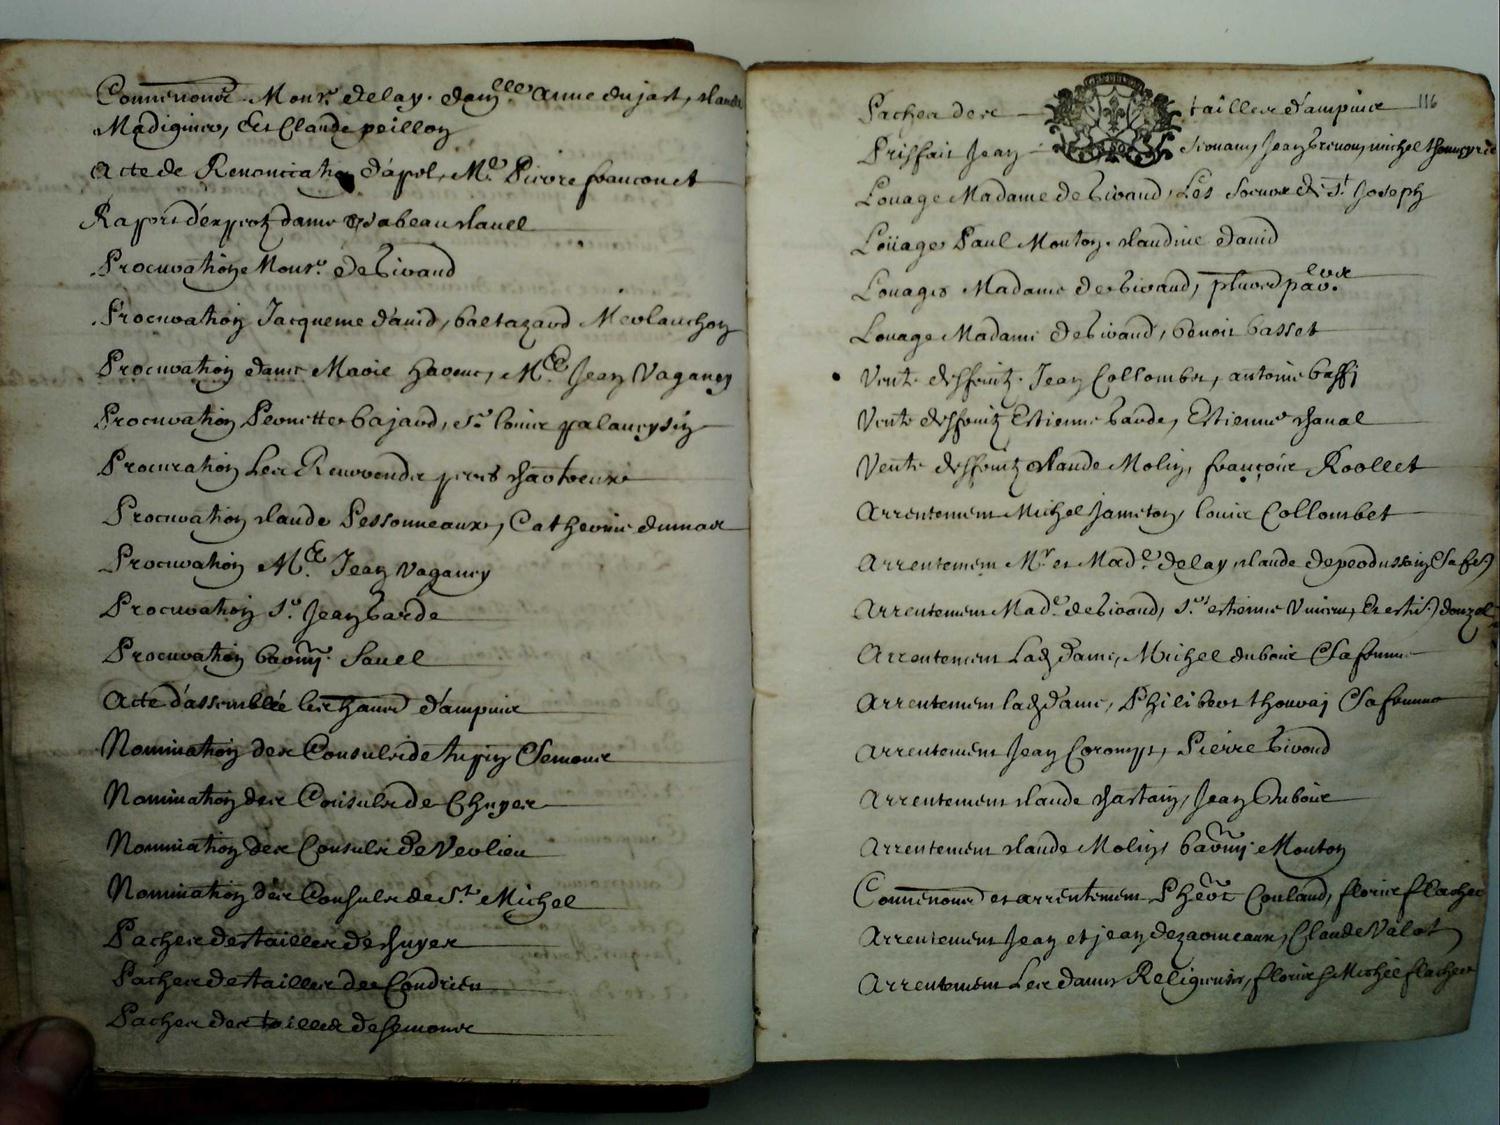 Connenonce Monsr. delay. damlle anne dujast, claude
Madiginer, Et Claude peillon
Acte de Renonciation d'apel, Me. Pierre franconet
Raport d'expertz dame ysabeau clauel
Procuration Monsr. de Givaud
Procuration Jacqueme dauid, baltazard Merlanchon
Procuration dame Marie, Me. Jean Vaganey
Procuration Pernette bajard, Sr. louis palancysin
Procuration Les Reuerendz peres chartreux
Procuration claude Pessonneaux, Catherine dumas
Procuration Me. Jean Vaganey
Procuration Sr. Jean barde
Procuration barmy. Sauel
Acte d'assemblée les d'ampuis
Nomination des Consulz de tupin & Semons
Nomination des Consulz de Chuyer
Nomination des Consulz de Verlieu
Nomination des Consulz de St. Michel
Paches des tailles de chuyer
Paches des tailles de Condrieu
Paches des tailles de Semons
Paches des tailles d'ampuis 116
Prisfait Jean Jean michel
Louage Madame de Givaud, Les Soeurs de St Joseph
Loüages Paul Monton, claudine dauid
Louages Madame de Givaud,
Louage Madame de Givaud, benoit basset
Vente desfruitz Jean Collombet, antoine baffi
Vente desfruitz Estienne barde, Estienne chanal
Vente desfruitz claude Molin, françois Roollet
Arrentement Michel Jameton, louis Collombet
Arrentement Mr et Made. delay, claude depeodussin & sa fe.
Arrentement Made. de Givaud, Sr. estienne Vincent, Et donzel
Arrentement Lad. dame, Michel dubois & sa femme
Arrentement lad. dame, Philibert thouvaj & sa femme
Arrentement Jean Corompt, Pierre Givond
Arrentement claude chastain, Jean dubois
Arrentement claude Molin, barmy Monton
Connenonce et arrentement Couland, floris flacher
Arrentement Jean et jean dezarmeaux, Claude Valot
Arrentement Les dames Religieuses, floris & Michel flacher